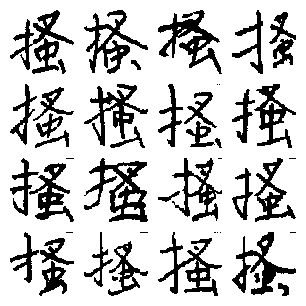 搔搔搔搔
搔搔搔搔
搔搔搔搔
搔搔搔搔